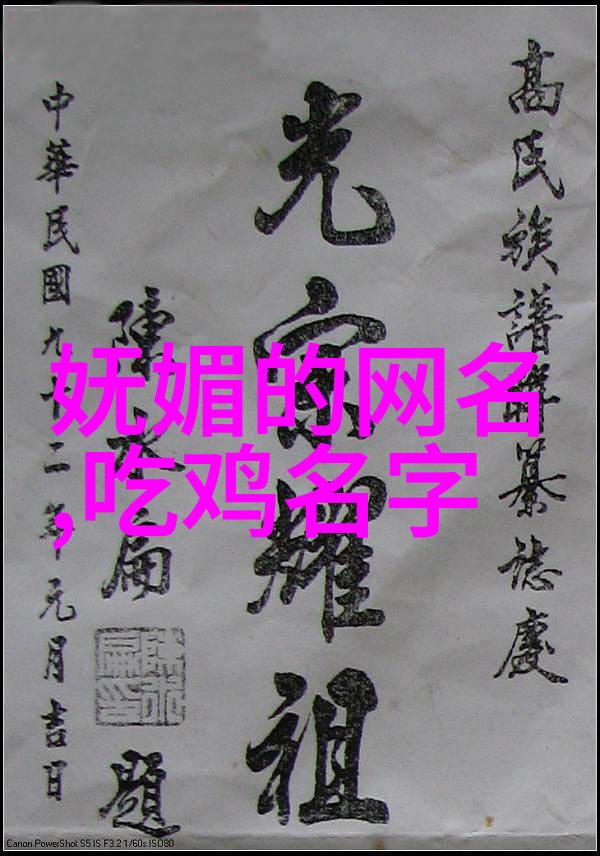 高氏族譜聯纂誌慶
光宗耀祖
陳水扁
題
中華民國九十二年元月吉日
妩媚的网名
,吃鸡名字
Canon PowerShot S5 IS F3.2 1/60s ISO80